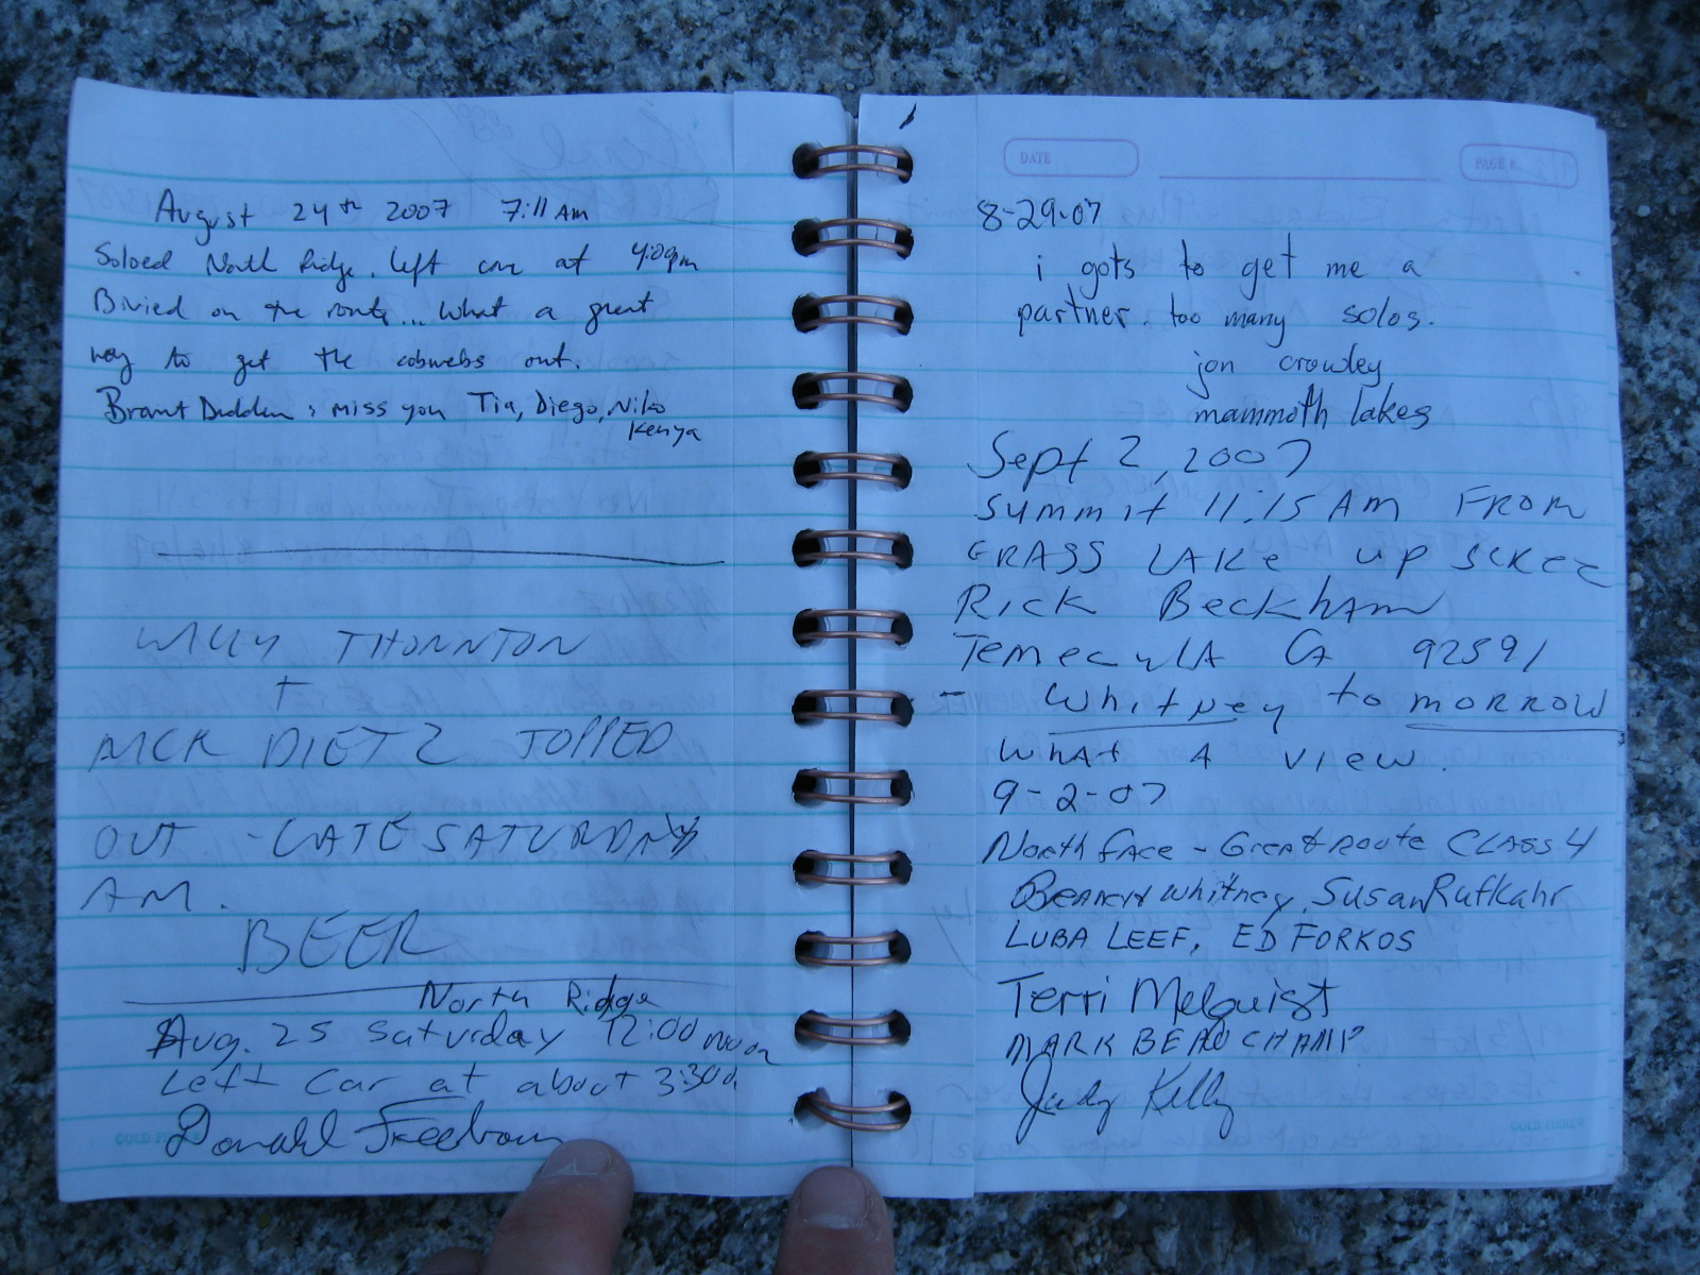 August 24th 2007 7:11 AM
Soloed North Ridge. left car at 4:00pm
Bivied on the route... what a great
way to get the cobwebs out.
Brant miss you Tia, Diego, Niko
Kenya
WILLY THORNTON
+
NICK DIETZ TOPPED
OUT - LATE SATURDAY
AM.
BEER
North Ridge
Aug. 25 Saturday 12:00 noon
Left Car at about 3:30
Donald
GOLD FIBRE
DATE
PAGE #
8-29-07
i gots to get me a
partner. too many solos.
jon crowley
mammoth lakes
Sept 2, 2007
Summit 11:15 AM FROM
GRASS LAKE up SCREE
Rick BeckhAm
TemeculA CA 92591
- Whitney tomorrow
What A view.
9-2-07
North face - Great route CLASS 4
Whitney, Susan Rufkahr
LUBA LEEF, ED FORKOS
Terri Melquist
MARK BEAUCHAMP
Judy Kelly
GOLD FIBRE